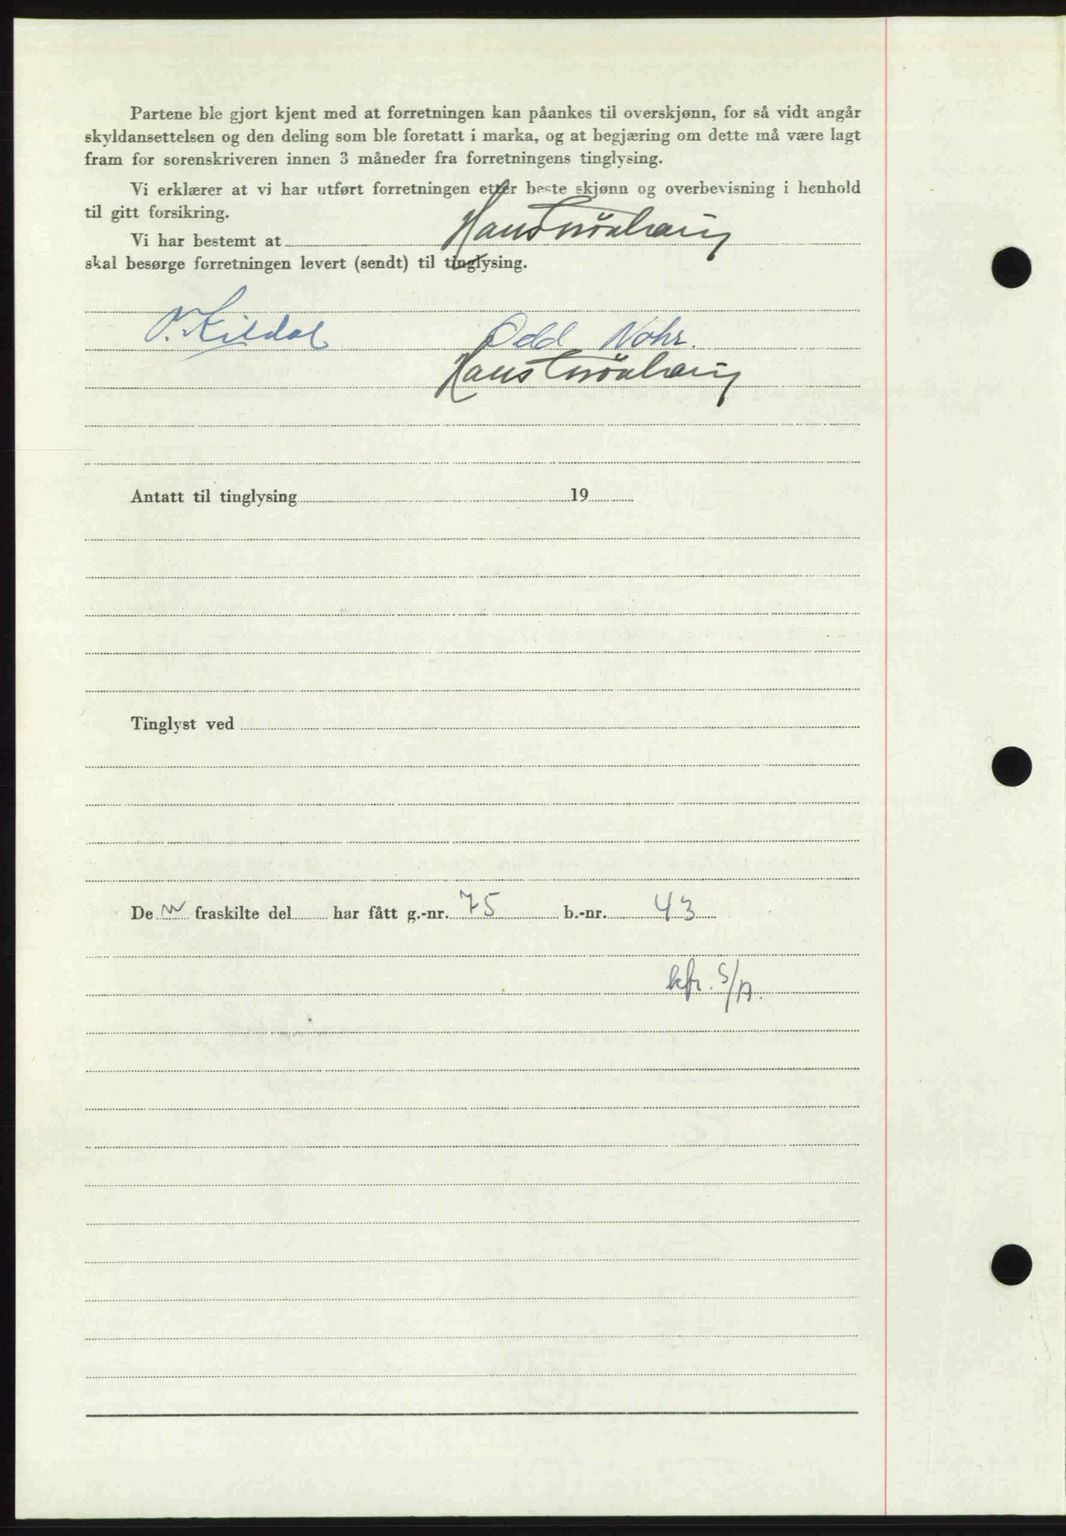 Partene ble gjort kjent med at forretningen kan påankes til overskjønn, for så vidt angår
skyldansettelsen og den deling som ble foretatt i marka, og at begjæring om dette må være lagt
fram for sorenskriveren innen 3 måneder fra forretningens tinglysing.
Vi erklærer at vi har utført forretningen etter beste skjønn og overbevisning i henhold
til gitt forsikring.
Vi har bestemt at Hans
skal besørge forretningen levert (sendt) til tinglysing.
O. Kildal Odd Nohr.
Hans
Antatt til tinglysing 19
Tinglyst ved
De n fraskilte del har fått g.-nr. 75 b.-nr. 43
kfr. S/A.